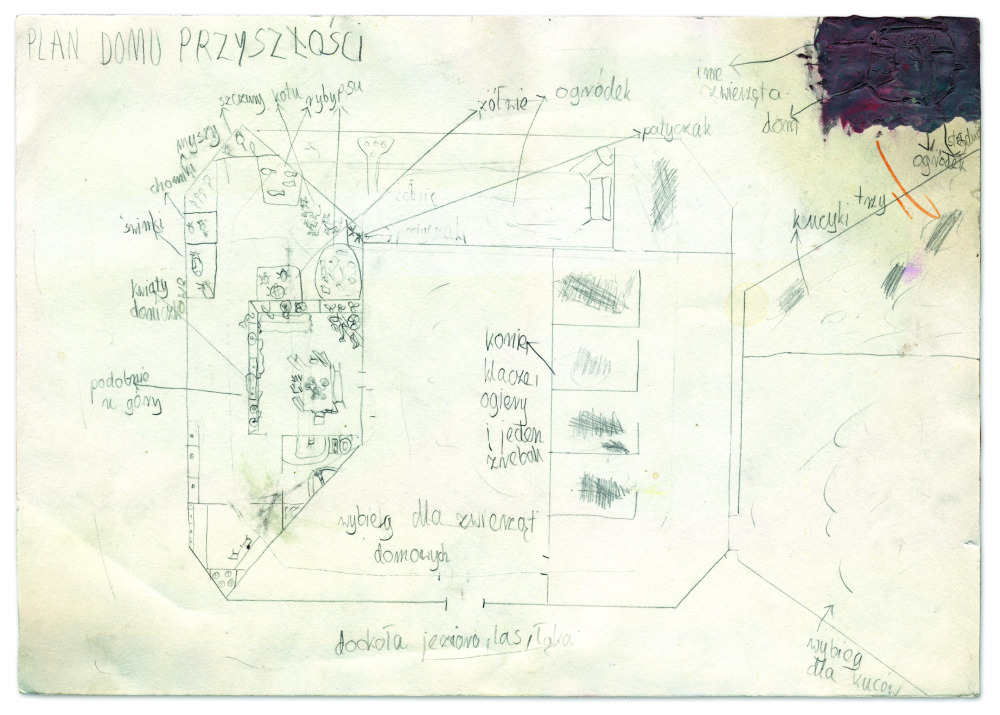 PLAN DOMU PRZYSZŁOŚCI
inne
zwierzęta
dom
ogródek
szczury kotu rybypsu
żółwie
ogródek
patyczak
myszy
chomik
świnki
żółwie
patyczak
kucyki trzy
kwiaty
doniczki
podobnie
u góry
konie,
klacze i
ogiery
i jeden
źrebak
wybieg dla zwierząt
domowych
dookoła jezioro, las, łąka
wybieg
dla kuców